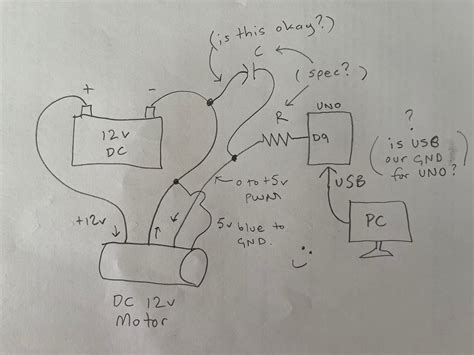 (is this okay?)
C
(spec?)
+ -
12v
DC
R
UNO
D9
?
(is USB
our GND
for UNO?)
0 to +5v
PWM
USB
PC
+12v
5v blue to
GND.
DC 12v
Motor